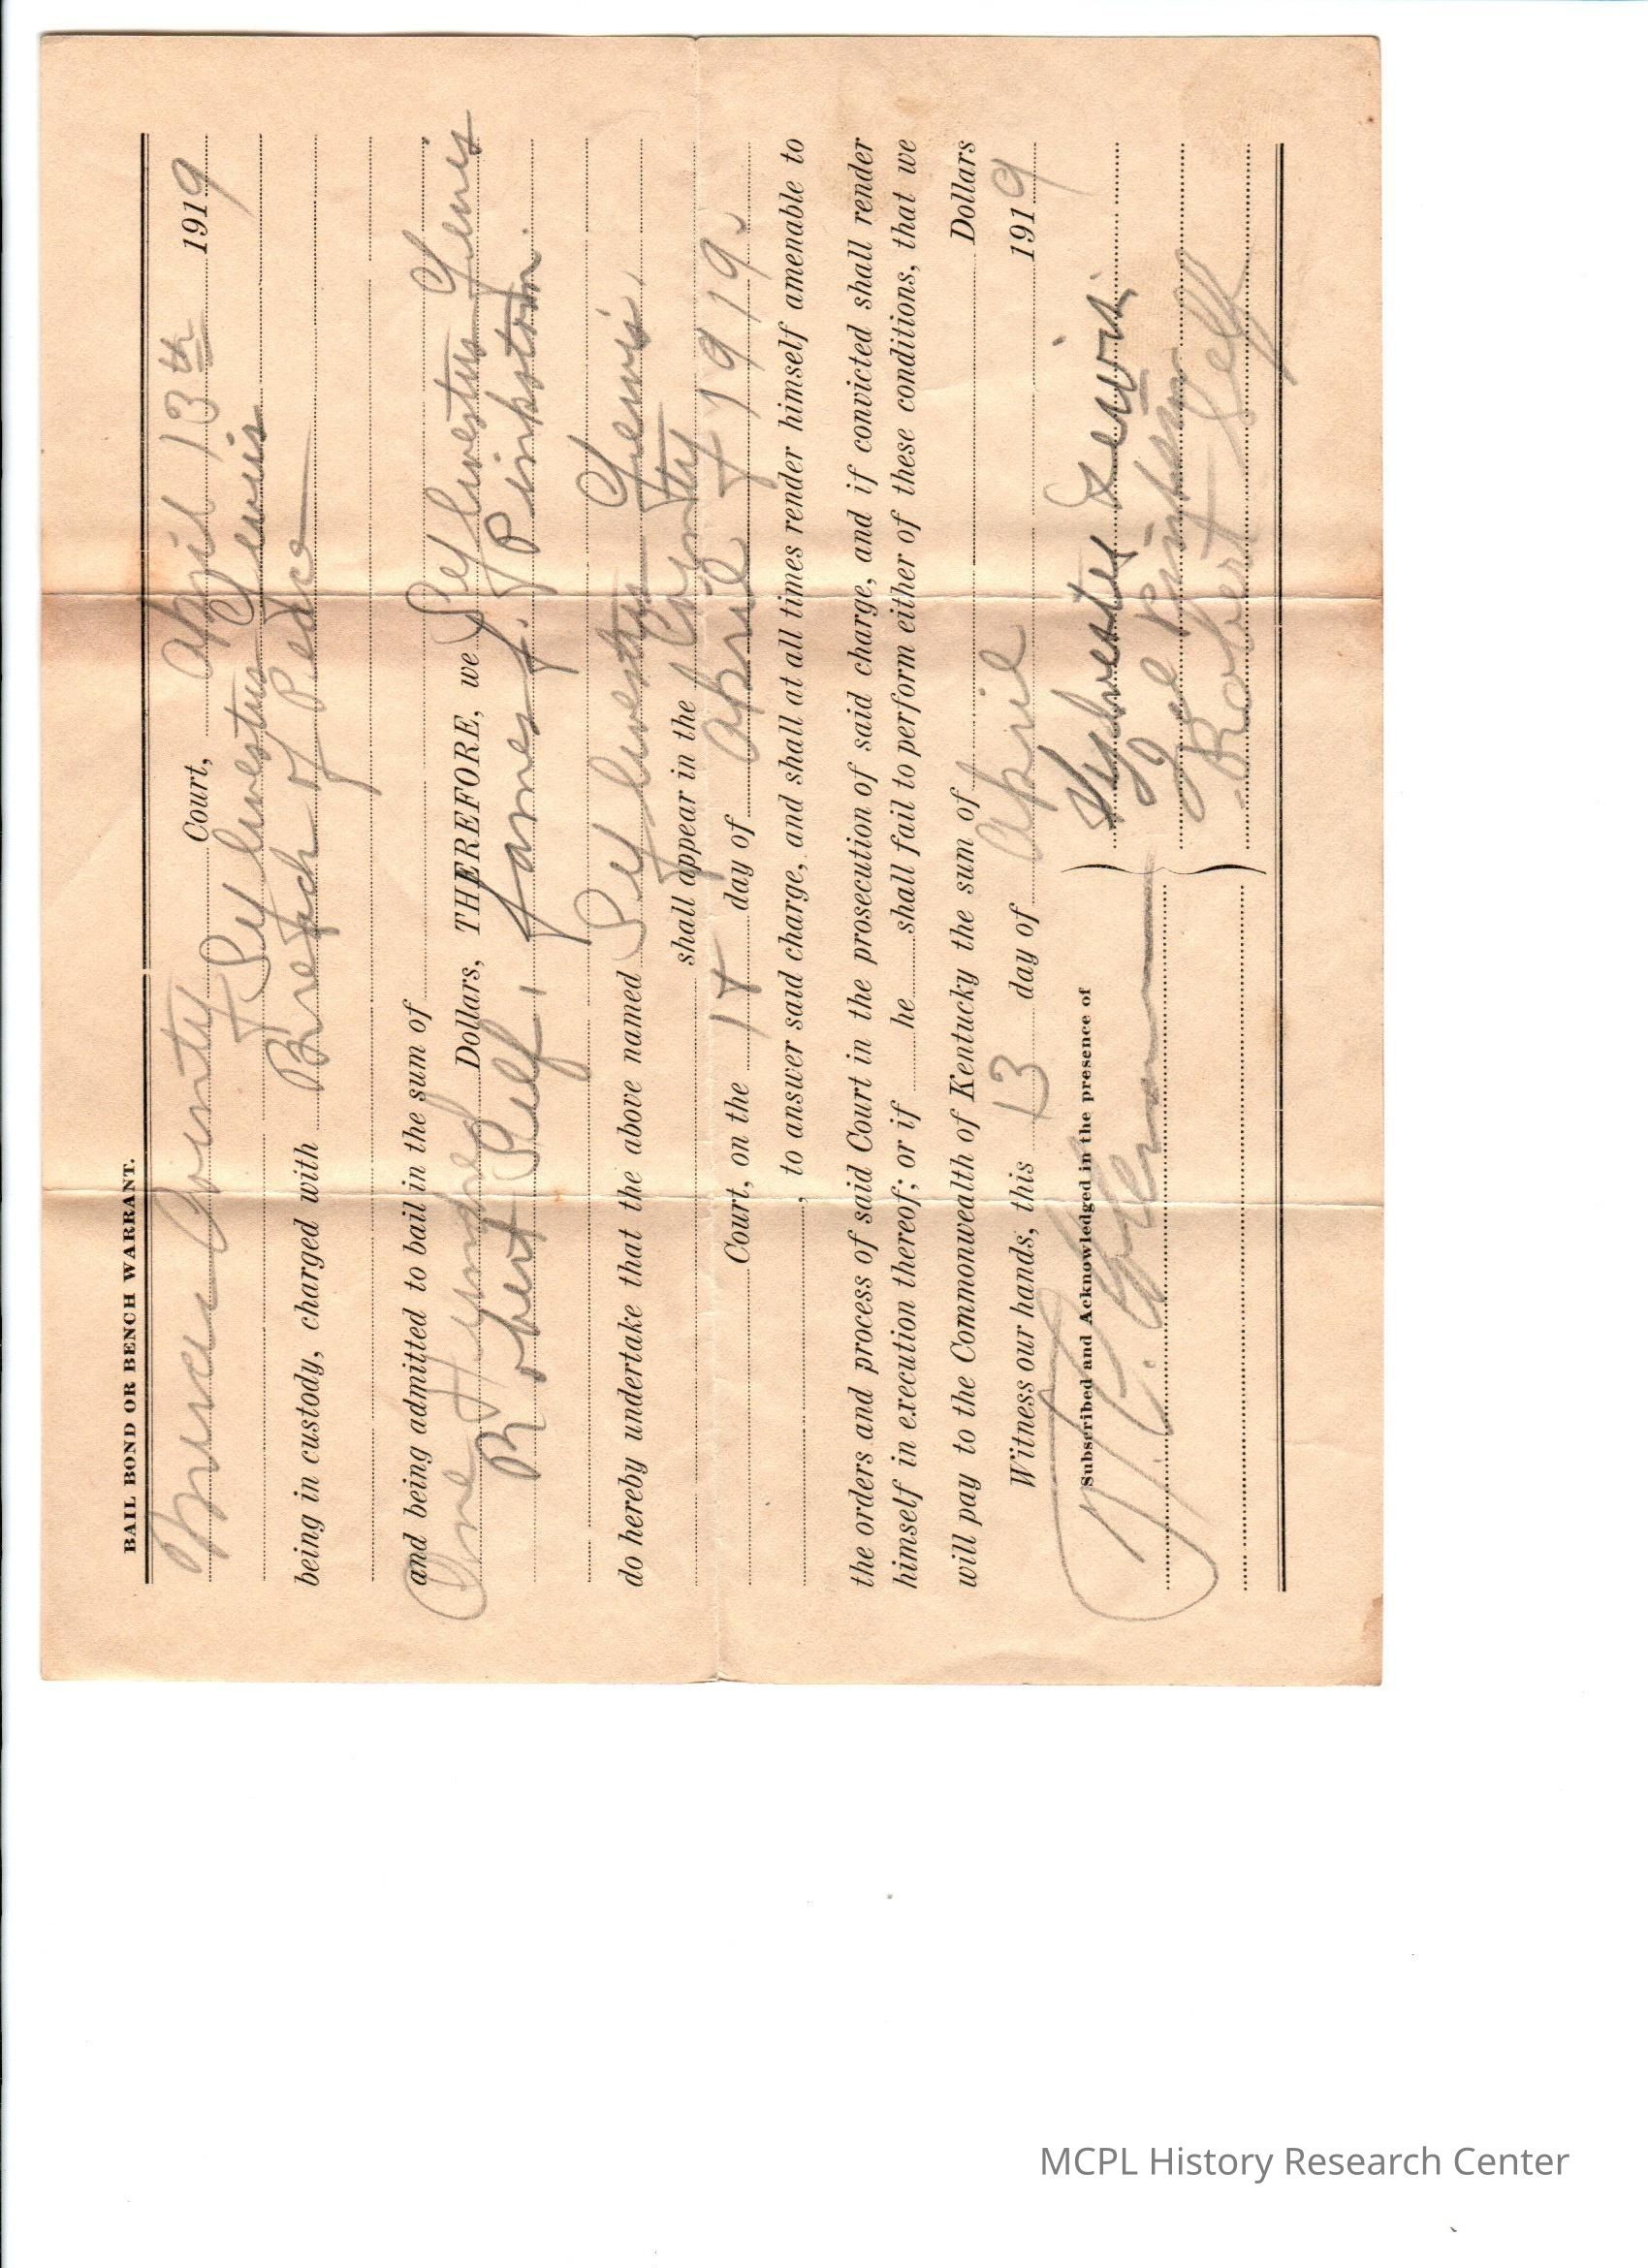 BAIL BOND OR BENCH WARRANT.
Mercer County Court, April 13th 1919
Sylvestus Lewis
being in custody, charged with Breach of Peace
and being admitted to bail in the sum of
One Hundred Dollars, THEREFORE, we Sylvestus Lewis
Robert Self, James J. Pinkston.
do hereby undertake that the above named Sylvestus Lewis,
shall appear in the County
Court, on the day of April 1919.
, to answer said charge, and shall at all times render himself amenable to
the orders and process of said Court in the prosecution of said charge, and if convicted shall render
himself in execution thereof; or if he shall fail to perform either of these conditions, that we
will pay to the Commonwealth of Kentucky the sum of Dollars
Witness our hands, this 13 day of April 1919
Subscribed and Acknowledged in the presence of
Sylvester Lewis.
Pinkston
Robert Self
MCPL History Research Center